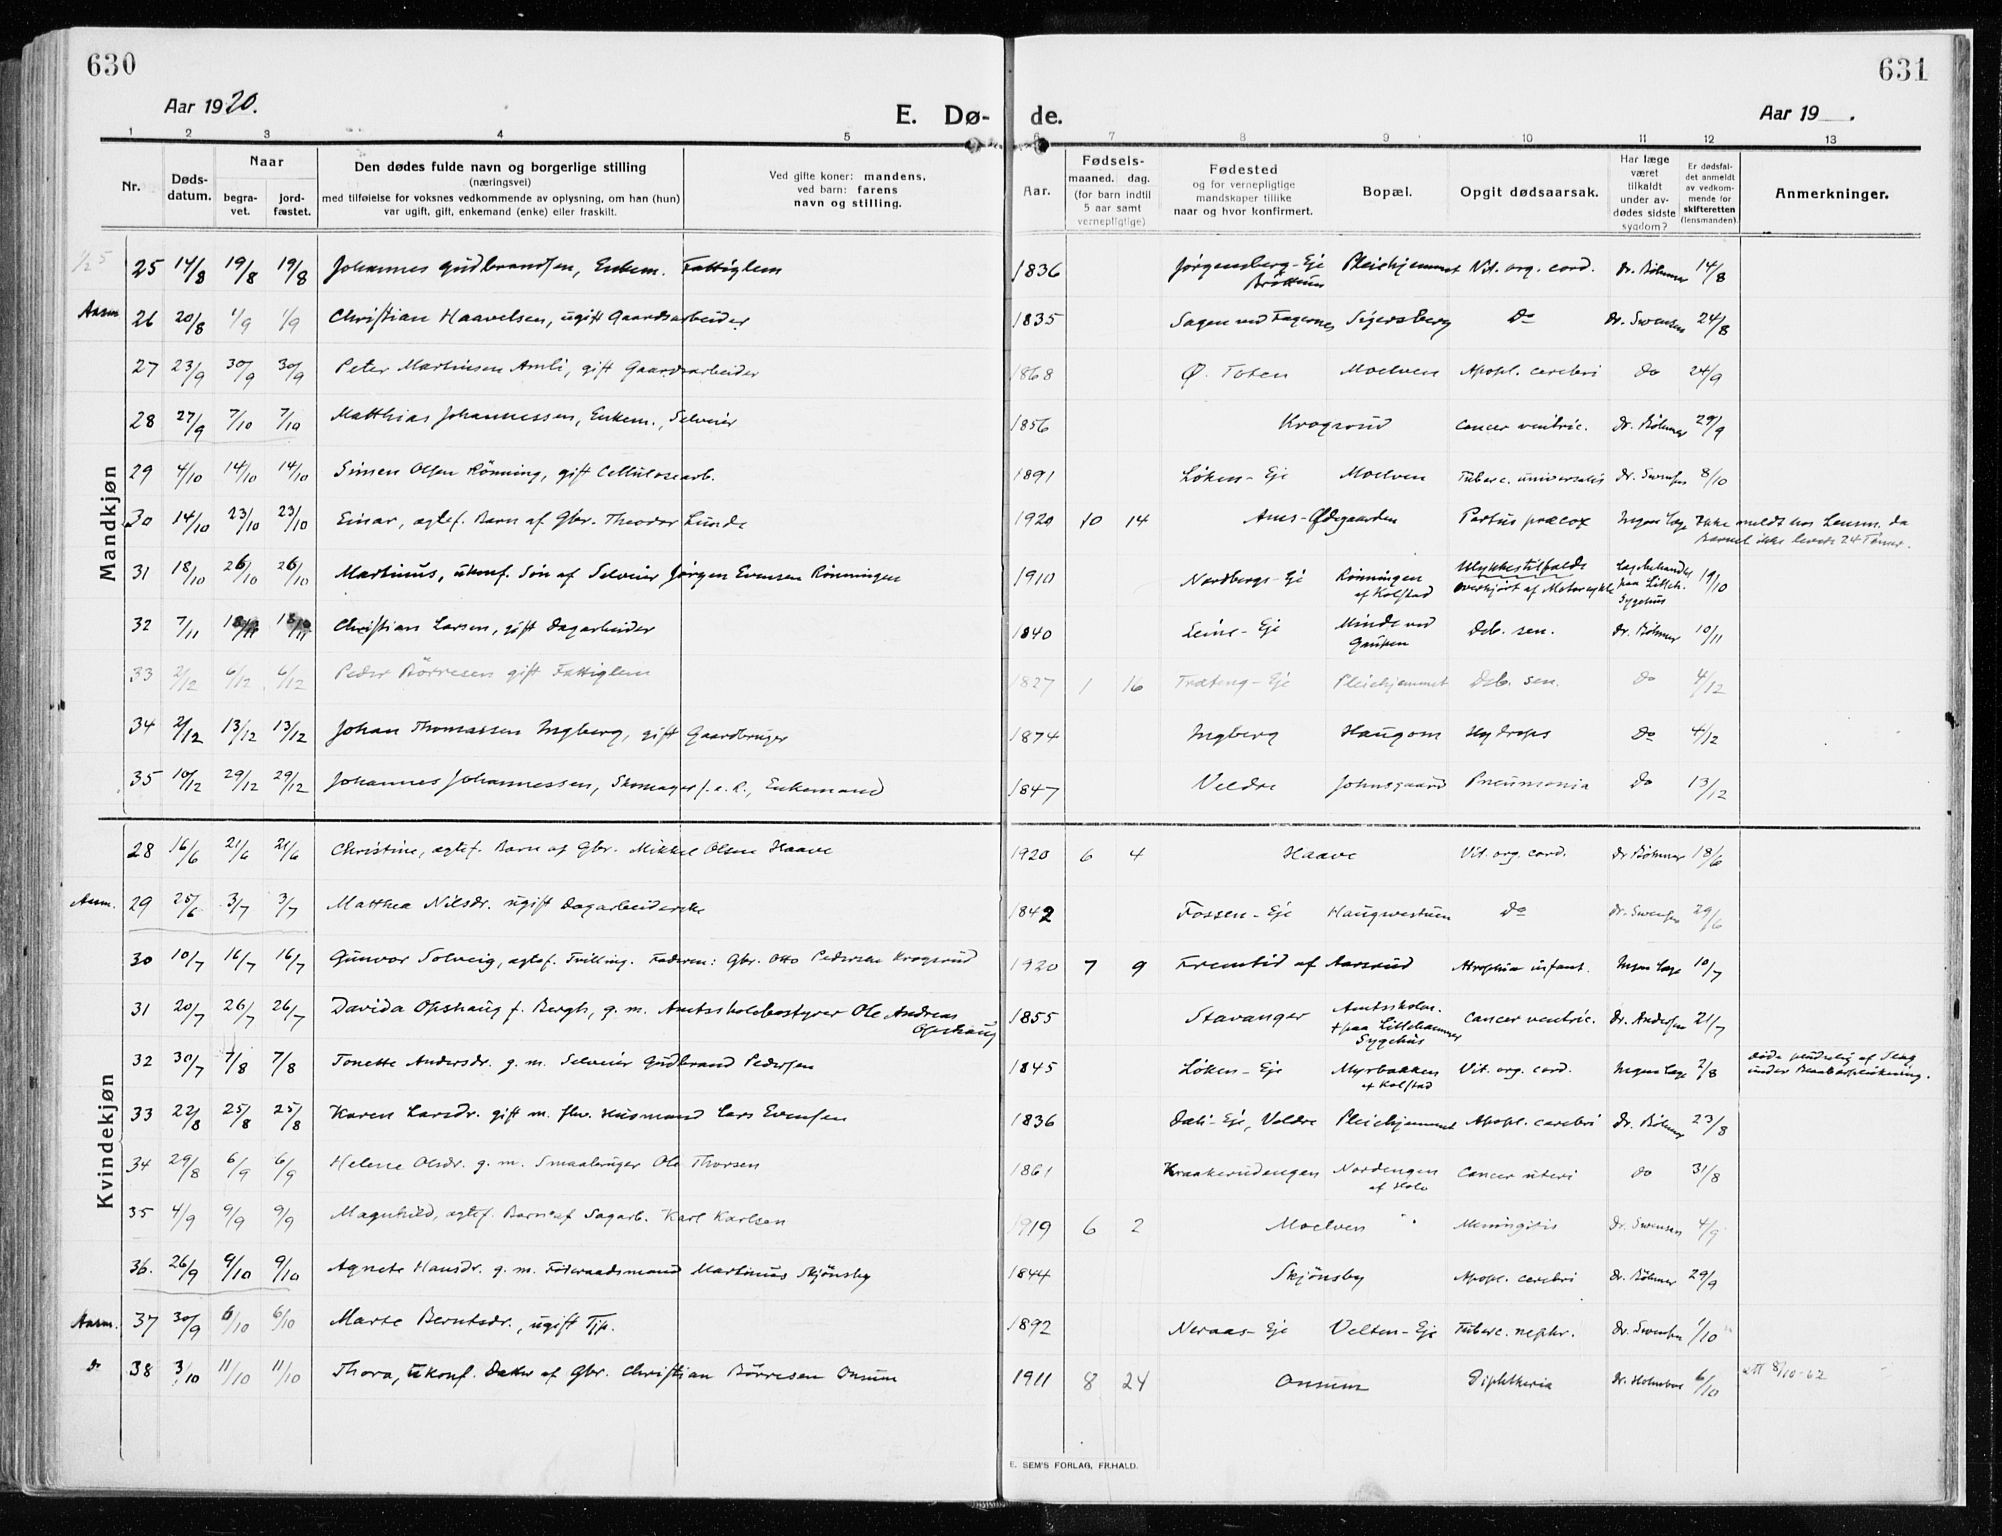 630
631
Aar 1920.
E. Dø-
de.
Aar 19   .
1 2 3 4 5 6 7 8 9 10 11 12 13
Nr.
Døds-
datum.
Naar
begra-
vet.
jord-
fæstet.
Den dødes fulde navn og borgerlige stilling
(næringsvei)
med tilføielse for voksnes vedkommende av oplysning, om han (hun)
var ugift, gift, enkemand (enke) eller fraskilt.
Ved gifte koner: mandens,
ved barn: farens
navn og stilling.
Aar.
Fødsels-
maaned. dag.
(for barn indtil
5 aar samt
vernepligtige)
Fødested
og for vernepligtige
mandskaper tillike
naar og hvor konfirmert.
Bopæl.
Opgit dødsaarsak.
Har læge
været
tilkaldt
under av-
dødes sidste
sygdom?
Er dødsfal-
det anmeldt
av vedkom-
mende for
skifteretten
(lensmanden).
Anmerkninger.
Mandkjøn
25 14/8 19/8 19/8 Johannes Gudbrandsen, Enkem. Fattiglem 1836 Jørgensberg-Eje Pleiehjemmet Vit. org. cord. Dr. Böhmer 14/8
Brøttum
Aasm 26 20/8 1/9 1/9 Christian Haavelsen, ugift Gaardsarbeider 1835 Sagen ved Fagernes Sijersberg Do Dr. Swensen 24/8
27 23/9 30/9 30/9 Peter Martinsen Amli, gift Gaardsarbeider 1868 Ø. Toten Moelven Apopl. cerebri Do 24/9
28 27/9 7/10 7/10 Matthias Johannessen, Enkem., Selveier 1856 Krogsrud Cancer ventric. Dr. Böhmer 29/9
29 4/10 14/10 14/10 Simen Olsen Rönning, gift Cellulosearb. 1891 Løken-Eje Moelven Tuberc. universalis Dr. Swensen 8/10
30 14/10 23/10 23/10 Einar, agtef. Barn af Gbr. Theodor Lunde 1920 10 14 Ams-Ødegaarden Partus præcox Ingen Læge Ikke meldt hos Lensm. da
Barnet ikke levede 24 Timer.
31 18/10 26/10 26/10 Martinus, ukonf. Søn af Selveier Jørgen Evensen Rönningen 1910 Nordbergs-Eje Rönningen
af Kolstad Ulykkestilfælde
overkjørt af Motorcykle Lægebehandlet
paa Lilleh.
Sygehus 19/10
32 7/11 18/11 18/11 Christian Larsen, gift Dagarbeider 1840 Leine-Eje Minde ved
Gaupen Deb. sen. Dr. Böhmer 10/11
33 2/12 6/12 6/12 Peder Börresen gift Fattiglem 1827 1 16 Træteng-Eje Pleiehjemmet Deb. sen. Do 4/12
34 2/12 13/12 13/12 Johan Thomassen Ingberg, gift Gaardbruger 1874 Ingberg Haugom Hydrops Do 4/12
35 10/12 29/12 29/12 Johannes Johannessen, Skomager f.e.R., Enkemand 1847 Veldre Johnsgaard Pneumonia Do 13/12
Kvindekjøn
28 16/6 21/6 21/6 Christine, agtef. Barn af Gbr. Mikkel Olsen Haave 1920 6 4 Haave Vit. org. cord. Dr Böhmer 18/6
Aasm. 29 25/6 3/7 3/7 Matthea Nilsdr. ugift Dagarbeiderske 1842 Fossen-Eje Do Dr. Swensen 29/6
30 10/7 16/7 16/7 Gunvor Solveig, agtef. Tvilling. Faderen: Gbr. Otto Pedersen Krogsrud 1920 7 9 Fremtid af Aasrud Atrophia infant. Ingen Læge 10/7
31 20/7 26/7 26/7 Davida Opshaug f. Bergh, g. m. Amtsskolebestyrer Ole Andreas
Opshaug 1855 Stavanger Amtsskolen.
+ paa Lillehammer
Sygehus Cancer ventric. Dr. Andersen 21/7
32 30/7 7/8 7/8 Tonette Andersdr. g. m. Selveier Gudbrand Pedersen 1845 Løken-Eje Myrbakken
af Kolstad Vit. org. cord. Ingen Læge 2/8 døde pludselig af Slag
under Bærplukning.
33 22/8 25/8 25/8 Karen Larsdr. gift m. fhv. Husmand Lars Evensen 1836 Dæli-Eje, Veldre Pleiehjemmet Apopl. cerebri Dr. Böhmer 23/8
34 29/8 6/9 6/9 Helene Olsdr. g. m. Smaabruger Ole Thorsen 1861 Kraakerudengen Nordengen
af Holo Cancer uteri Do 31/8
35 4/9 9/9 9/9 Magnhild, agtef. Barn af Sagarb. Karl Karlsen 1919 6 2 Moelven Meningitis Dr. Swensen 4/9
36. 26/9 9/10 9/10 Agnete Hansdr. g. m. Føderaadsmand Martinus Skjönsby 1844 Skjönsby Apopl. cerebri Dr. Böhmer 29/9
Aasm. 37 30/9 6/10 6/10 Marte Berntsdr., ugift Tjp. 1892 Neraas-Eje Velten-Eje Tuberc. nephr. Dr. Swensen 1/10
Do 38 3/10 11/10 11/10 Thora, ukonf. Datter af Gbr. Christian Börresen Onsum 1911 8 24 Onsum Diphtheria 6/10 att 8/10-62
E. SEM'S FORLAG, FR.HALD.